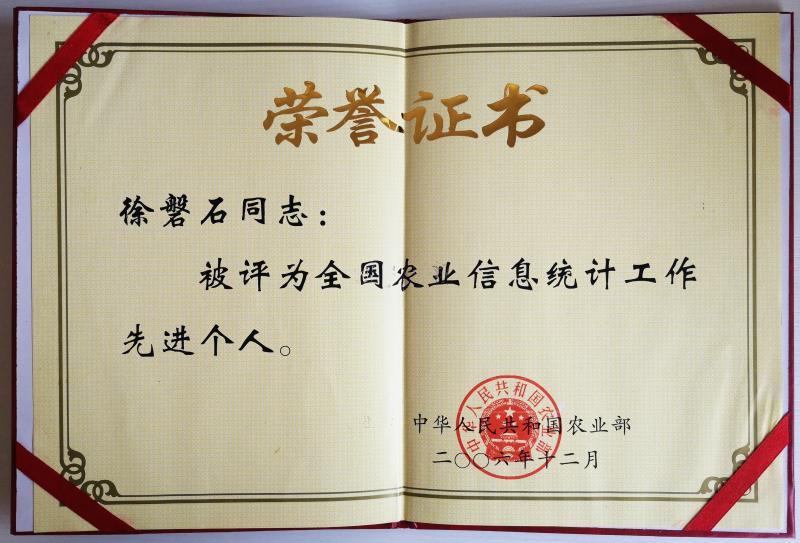 荣誉证书
徐磐石同志：
被评为全国农业信息统计工作
先进个人。
中华人民共和国农业部
二〇〇六年十二月
中华人民共和国农业部